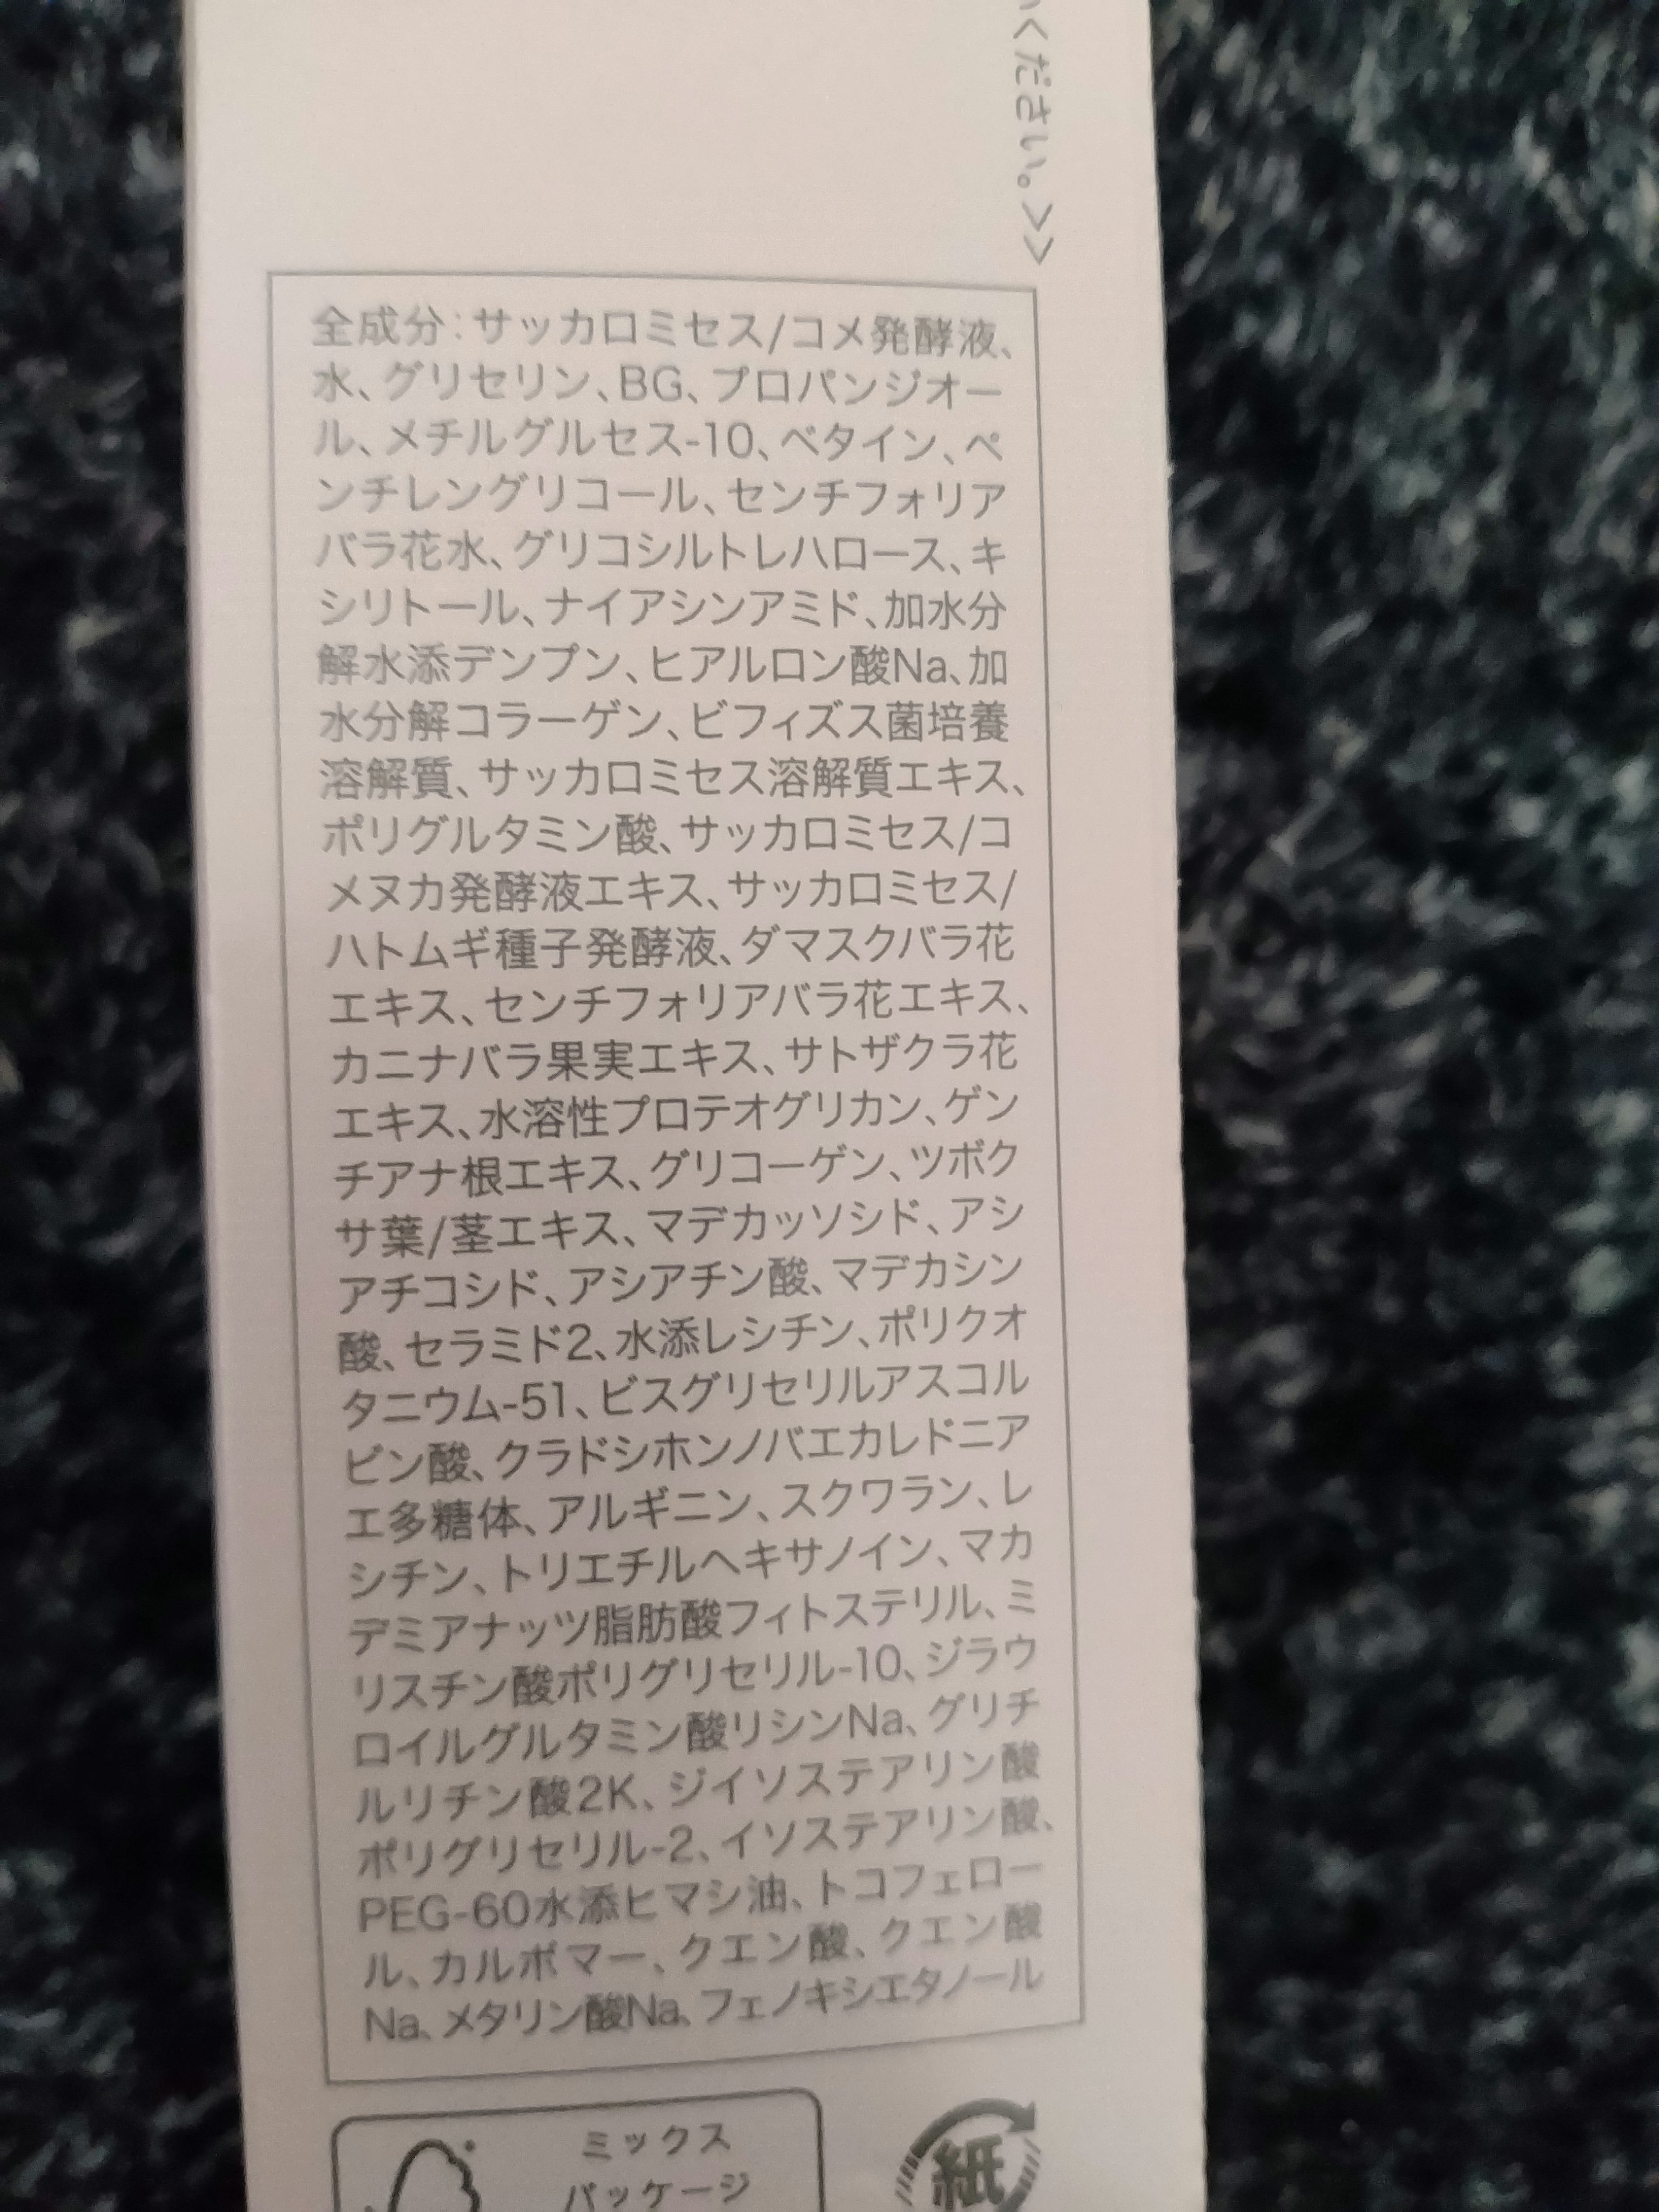 いください。>>
全成分：サッカロミセス/コメ発酵液、
水、グリセリン、BG、プロパンジオー
ル、メチルグルセス-10、ベタイン、ペ
ンチレングリコール、センチフォリア
バラ花水、グリコシルトレハロース、キ
シリトール、ナイアシンアミド、加水分
解水添デンプン、ヒアルロン酸Na、加
水分解コラーゲン、ビフィズス菌培養
溶解質、サッカロミセス溶解質エキス、
ポリグルタミン酸、サッカロミセス/コ
メヌカ発酵液エキス、サッカロミセス/
ハトムギ種子発酵液、ダマスクバラ花
エキス、センチフォリアバラ花エキス、
カニナバラ果実エキス、サトザクラ花
エキス、水溶性プロテオグリカン、ゲン
チアナ根エキス、グリコーゲン、ツボク
サ葉/茎エキス、マデカッソシド、アシ
アチコシド、アシアチン酸、マデカシン
酸、セラミド2、水添レシチン、ポリクオ
タニウム-51、ビスグリセリルアスコル
ビン酸、クラドシホンノバエカレドニア
エ多糖体、アルギニン、スクワラン、レ
シチン、トリエチルヘキサノイン、マカ
デミアナッツ脂肪酸フィトステリル、ミ
リスチン酸ポリグリセリル-10、ジラウ
ロイルグルタミン酸リシンNa、グリチ
ルリチン酸2K、ジイソステアリン酸
ポリグリセリル-2、イソステアリン酸、
PEG-60水添ヒマシ油、トコフェロー
ル、カルボマー、クエン酸、クエン酸
Na、メタリン酸Na、フェノキシエタノール
ミックス
パッケージ
紙